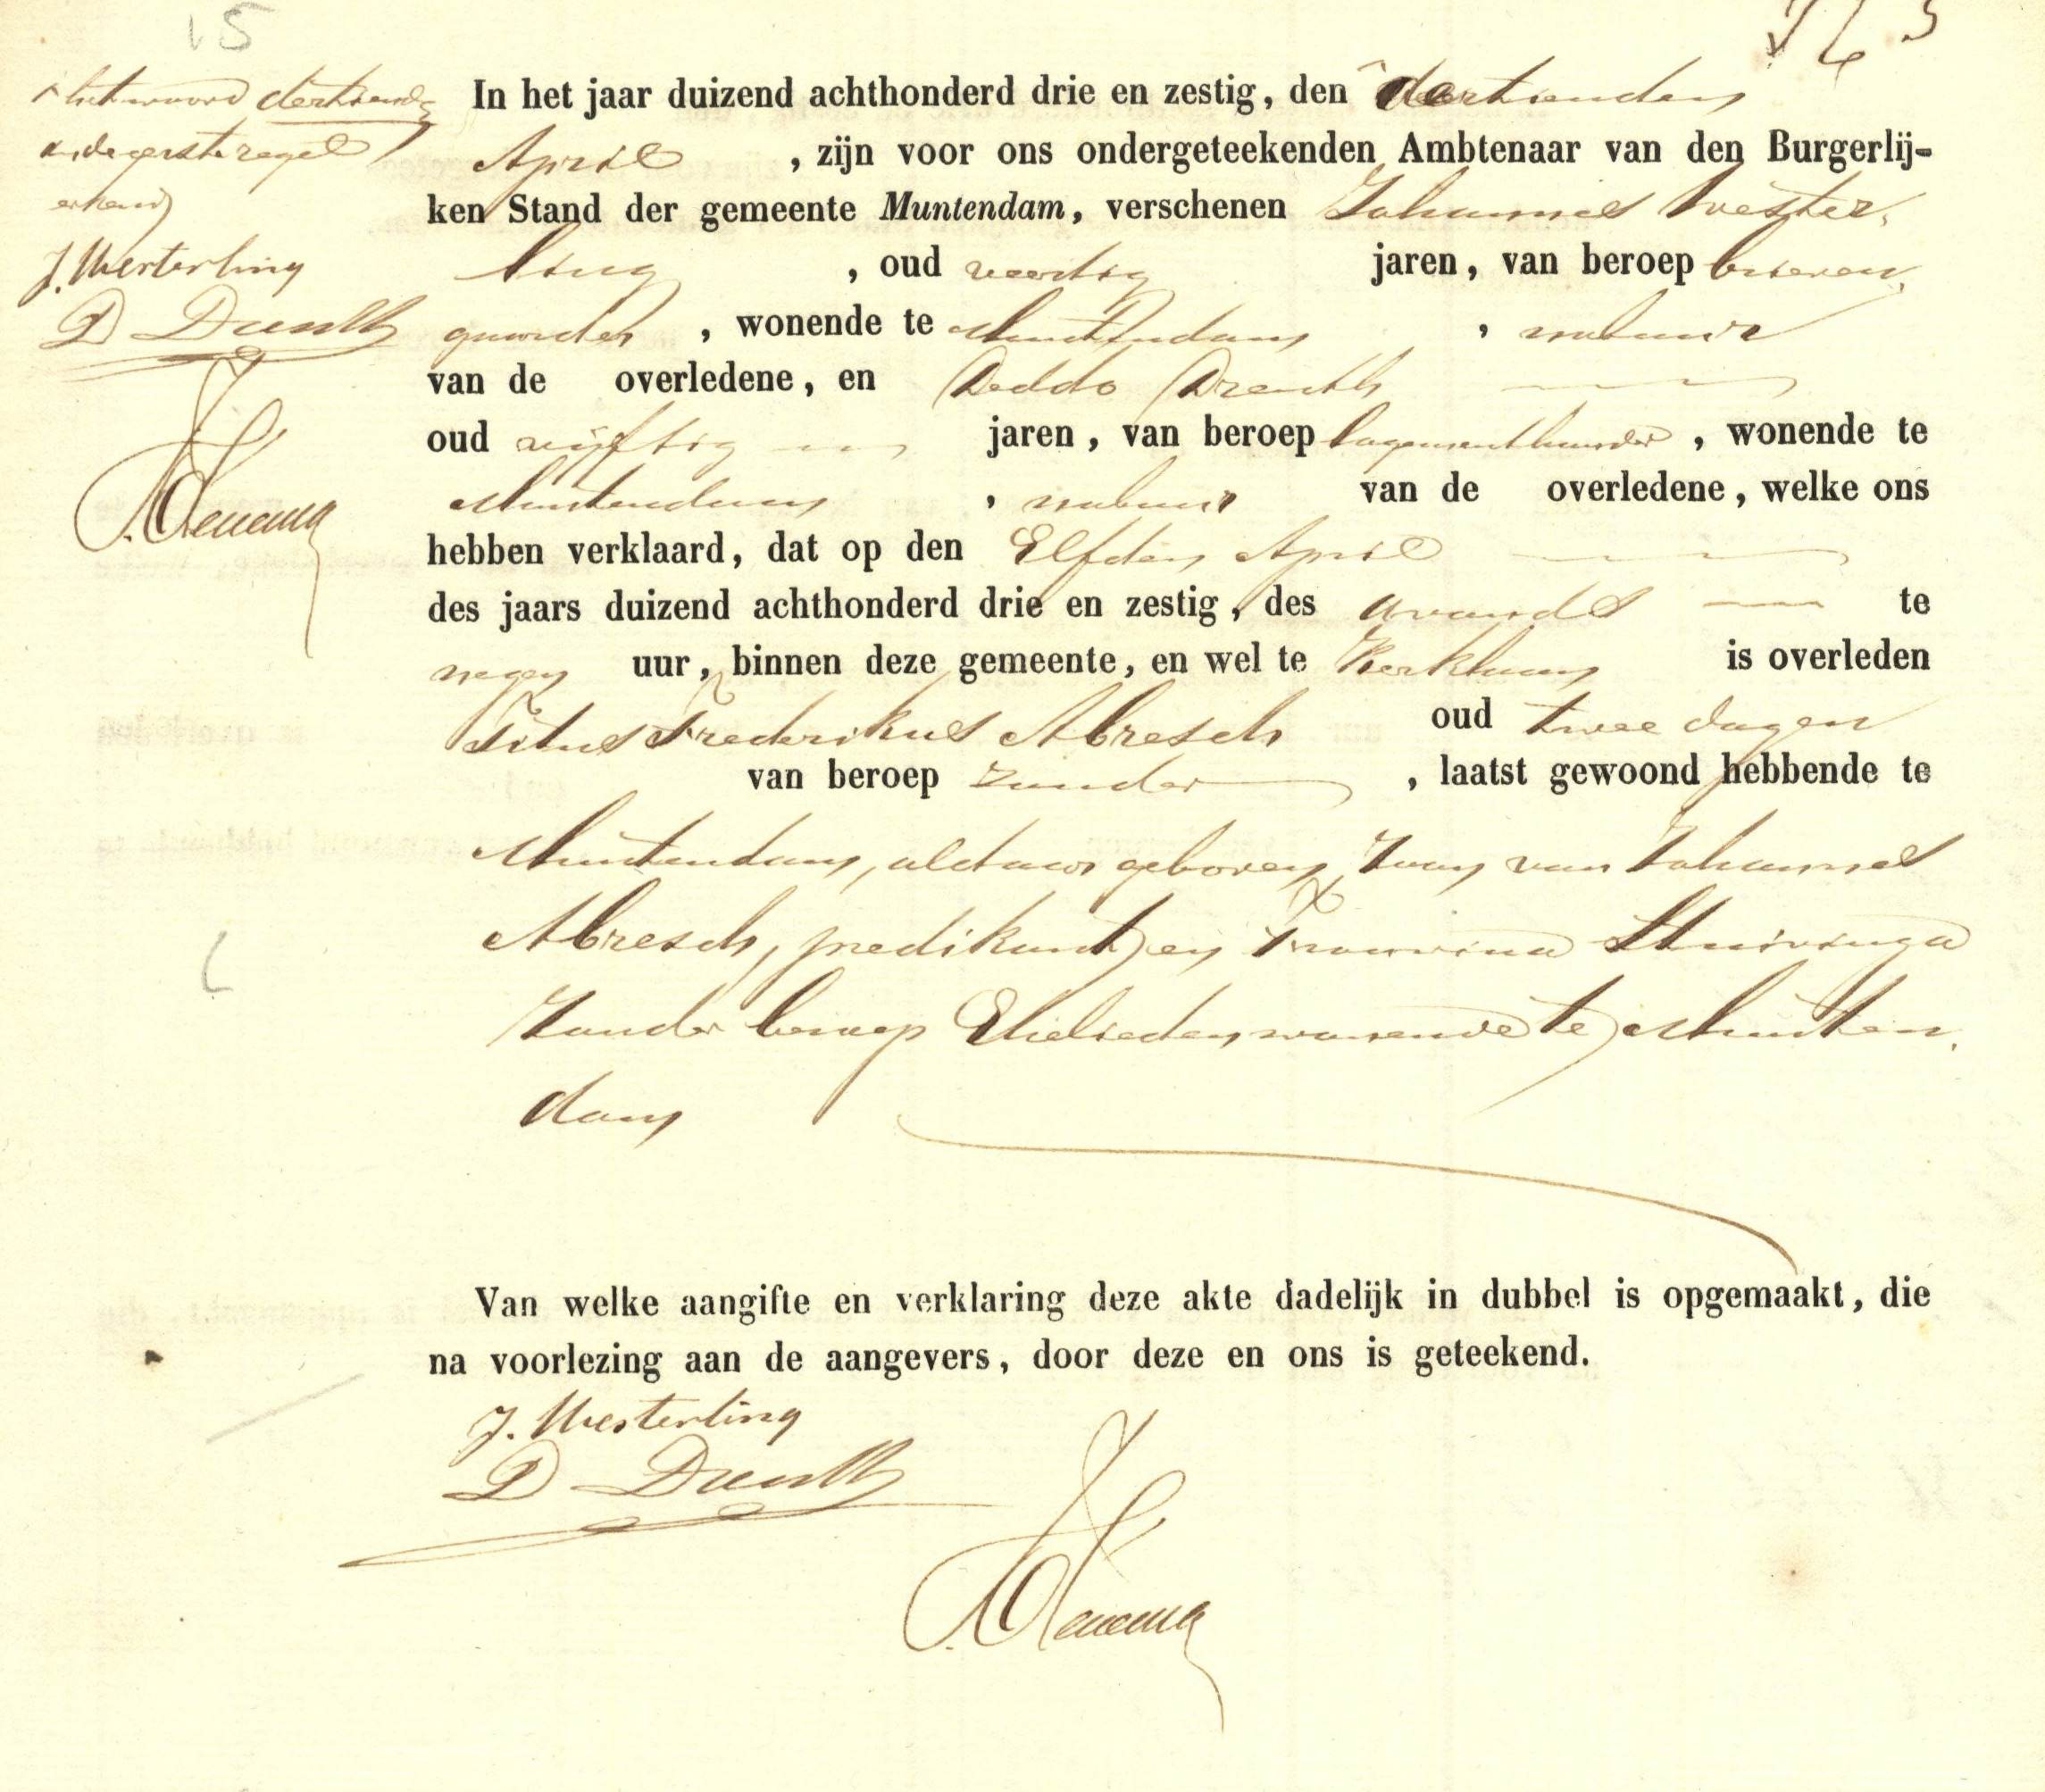 15
het woord dertiende
in de eerste regel
erkend
J. Westerling
D Drenth
In het jaar duizend achthonderd drie en zestig, den dertienden
April , zijn voor ons ondergeteekenden Ambtenaar van den Burgerlij-
ken Stand der gemeente Muntendam, verschenen Johannes Wester,
ling , oud veertig jaren, van beroep brieven,
gaarder , wonende te Muntendam , nabuur
van de overledene, en Deddo Drenth
oud vijftig jaren, van beroep logementhouder , wonende te
Muntendam , nabuur van de overledene, welke ons
hebben verklaard, dat op den Elfden April
des jaars duizend achthonderd drie en zestig, des avonds te
negen uur, binnen deze gemeente, en wel te Kerklaan is overleden
Titus Frederikus Abresch oud twee dagen
van beroep zonder , laatst gewoond hebbende te
Muntendam, aldaar geboren, Zoon van Johannes
Abresch, predikant en Trouwina Stuivinga
Zonder beroep Ehelieden wonende te Munten,
dam
Van welke aangifte en verklaring deze akte dadelijk in dubbel is opgemaakt, die
na voorlezing aan de aangevers, door deze en ons is geteekend.
J. Westerling
D Drenth